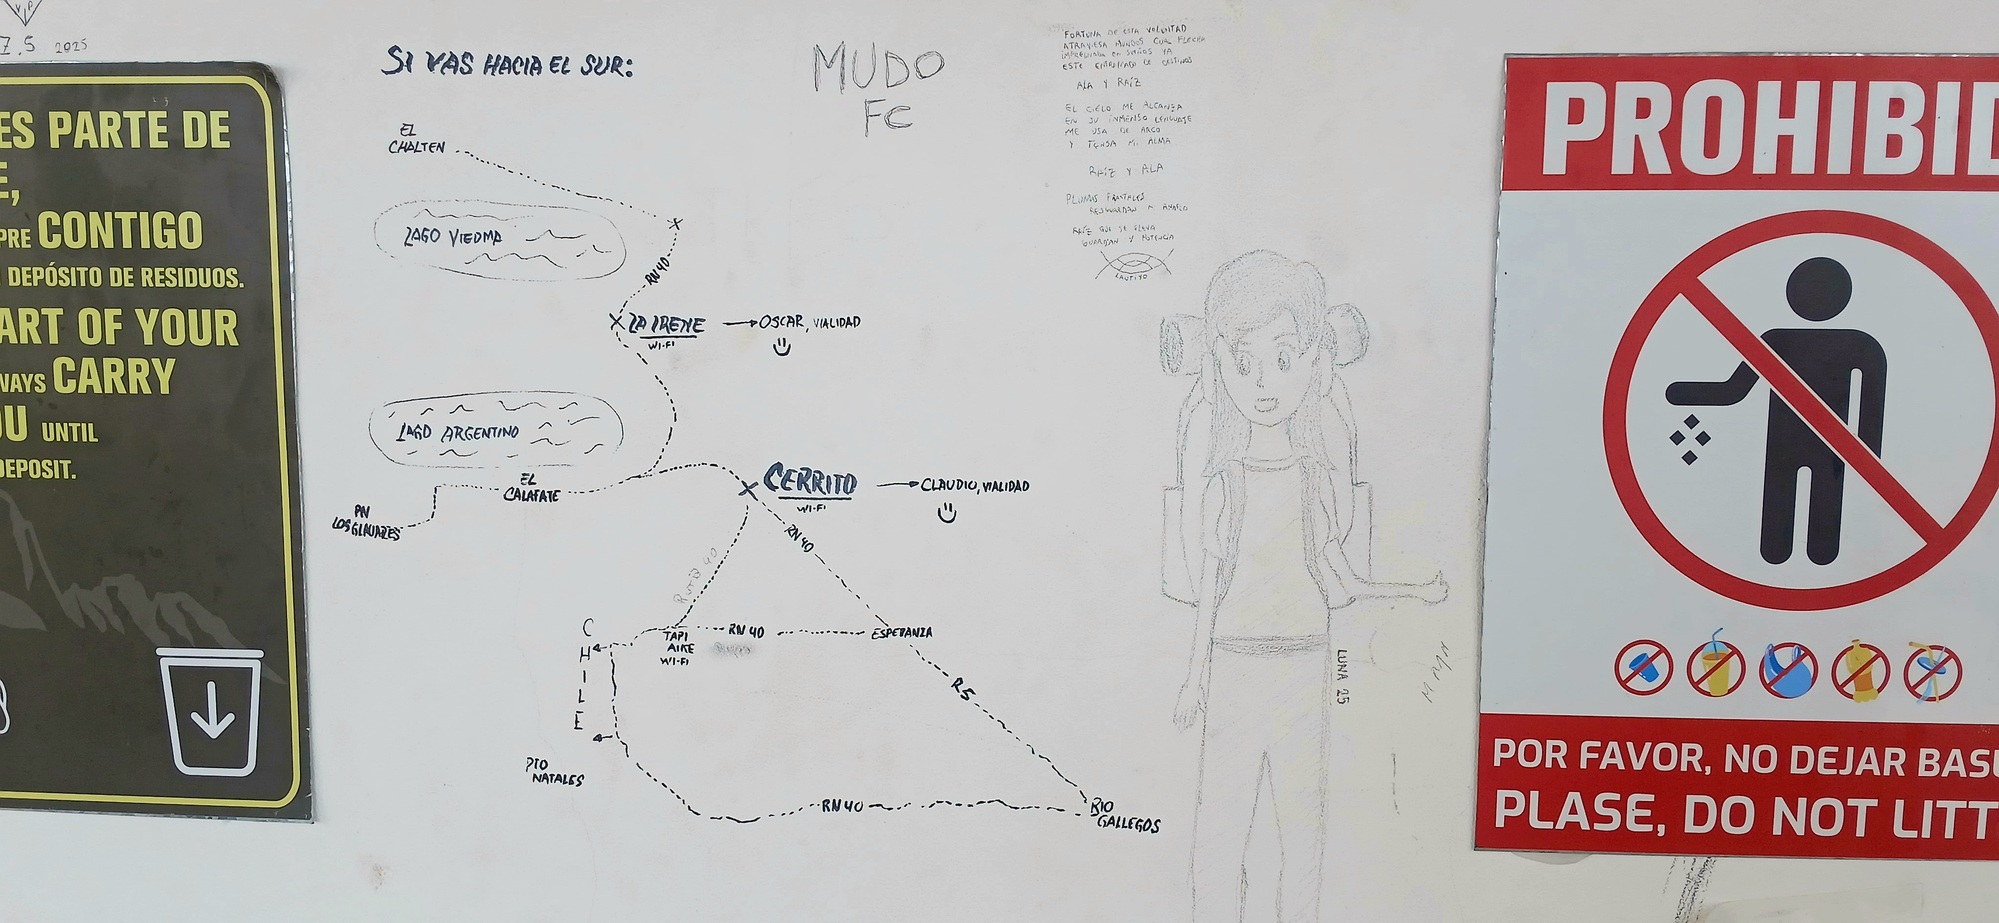 V P
7.5 2025
ES PARTE DE
E,
PRE CONTIGO
DEPÓSITO DE RESIDUOS.
ART OF YOUR
WAYS CARRY
OU UNTIL
DEPOSIT.
SI VAS HACIA EL SUR:
EL
CHALTEN
LAGO VIEDMA
RN 40
LA IRENE
WI-FI
OSCAR, VIALIDAD
LAGO ARGENTINO
EL
CALAFATE
PN
LOS GLACIARES
CERRITO
WI-FI
CLAUDIO, VIALIDAD
RN 40
Ruta 40
TAPI
AIKE
WI-FI
RN 40
ESPERANZA
CHILE
R5
PTO
NATALES
RN 40
RIO
GALLEGOS
MUDO
FC
FORTUNA DE ESTA VOLUNTAD
ATRAVIESA MUNDOS CUAL FLECHA
EN SUEÑOS YA
ESTE DE DESTINOS
ALA Y RAÍZ
EL CIELO ME ALCANZA
EN SU INMENSO LENGUAJE
ME USA DE ARCO
Y TENSA MI ALMA
RAÍZ Y ALA
PLUMAS FRACTALES
RAÍZ QUE SE ELEVA
GUARDIAN Y POTENCIA
LAUTITO
LUNA 25
PROHIBID
POR FAVOR, NO DEJAR BASU
PLASE, DO NOT LITT